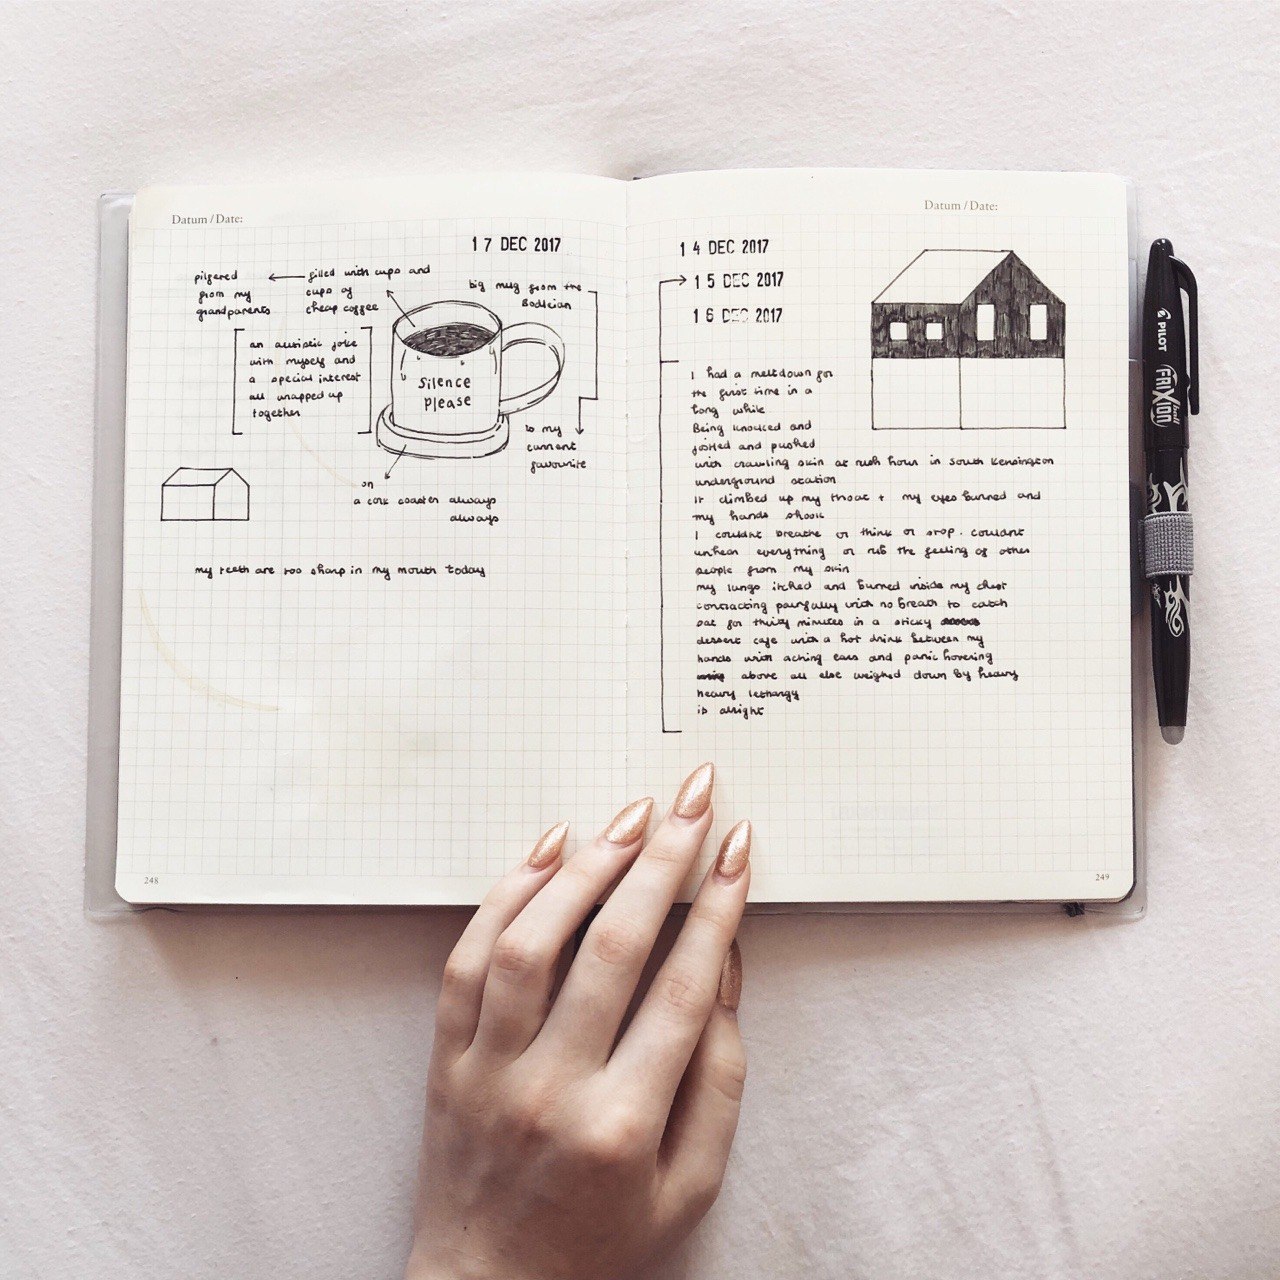 Datum / Date:
17 DEC 2017
pilfered
from my
grandparents
filled with cups and
cups of
cheap coffee
big mug from the
Bodleian
an autistic joke
with myself and
a special interest
all wrapped up
together
Silence
please
is my
current
favourite
on
a cork coaster always
always
my teeth are too sharp in my mouth today
248
Datum / Date:
14 DEC 2017
15 DEC 2017
16 DEC 2017
I had a meltdown for
the first time in a
long while
Being knocked and
jostled and pushed
with crawling skin at rush hour in south Kensington
underground station
It climbed up my throat + my eyes burned and
my hands shook
I couldnt breathe or think or stop. couldnt
unhear everything or rub the feeling of other
people from my skin
my lungs itched and burned inside my chest
contracting painfully with no breath to catch
sat for thirty minutes in a sticky
dessert cafe with a hot drink between my
hands with aching ears and panic hovering
above all else weighed down by heavy
heavy lethargy
is alright
249
PILOT
FRIXION